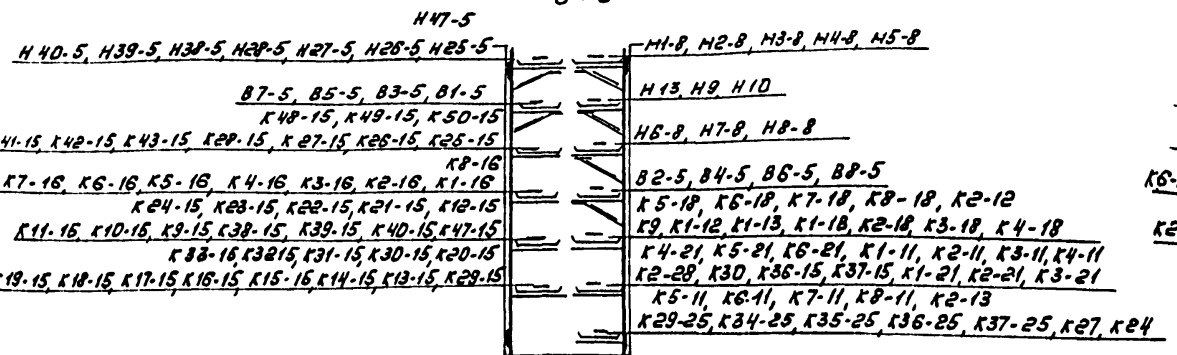 Н47-5
Н40-5, Н39-5, Н38-5, Н28-5, Н27-5, Н26-5, Н25-5
В7-5, В5-5, В3-5, В1-5
К48-15, К49-15, К50-15
41-15, К42-15, К43-15, К28-15, К27-15, К26-15, К25-15
К8-16
К7-16, К6-16, К5-16, К4-16, К3-16, К2-16, К1-16
К24-15, К23-15, К22-15, К21-15, К12-15
К11-16, К10-16, К9-15, К38-15, К39-15, К40-15, К47-15
К33-16, К3215, К31-15, К30-15, К20-15
К19-15, К18-15, К17-15, К16-15, К15-16, К14-15, К13-15, К29-15
Н1-8, Н2-8, Н3-8, Н4-8, Н5-8
Н13, Н9, Н10
Н6-8, Н7-8, Н8-8
В2-5, В4-5, В6-5, В8-5
К5-18, К6-18, К7-18, К8-18, К2-12
К9, К1-12, К1-13, К1-18, К2-18, К3-18, К4-18
К4-21, К5-21, К6-21, К1-11, К2-11, К3-11, К4-11
К2-28, К30, К36-15, К37-15, К1-21, К2-21, К3-21
К5-11, К6-11, К7-11, К8-11, К2-13
К29-25, К34-25, К35-25, К36-25, К37-25, К27, К24
К6-
К2